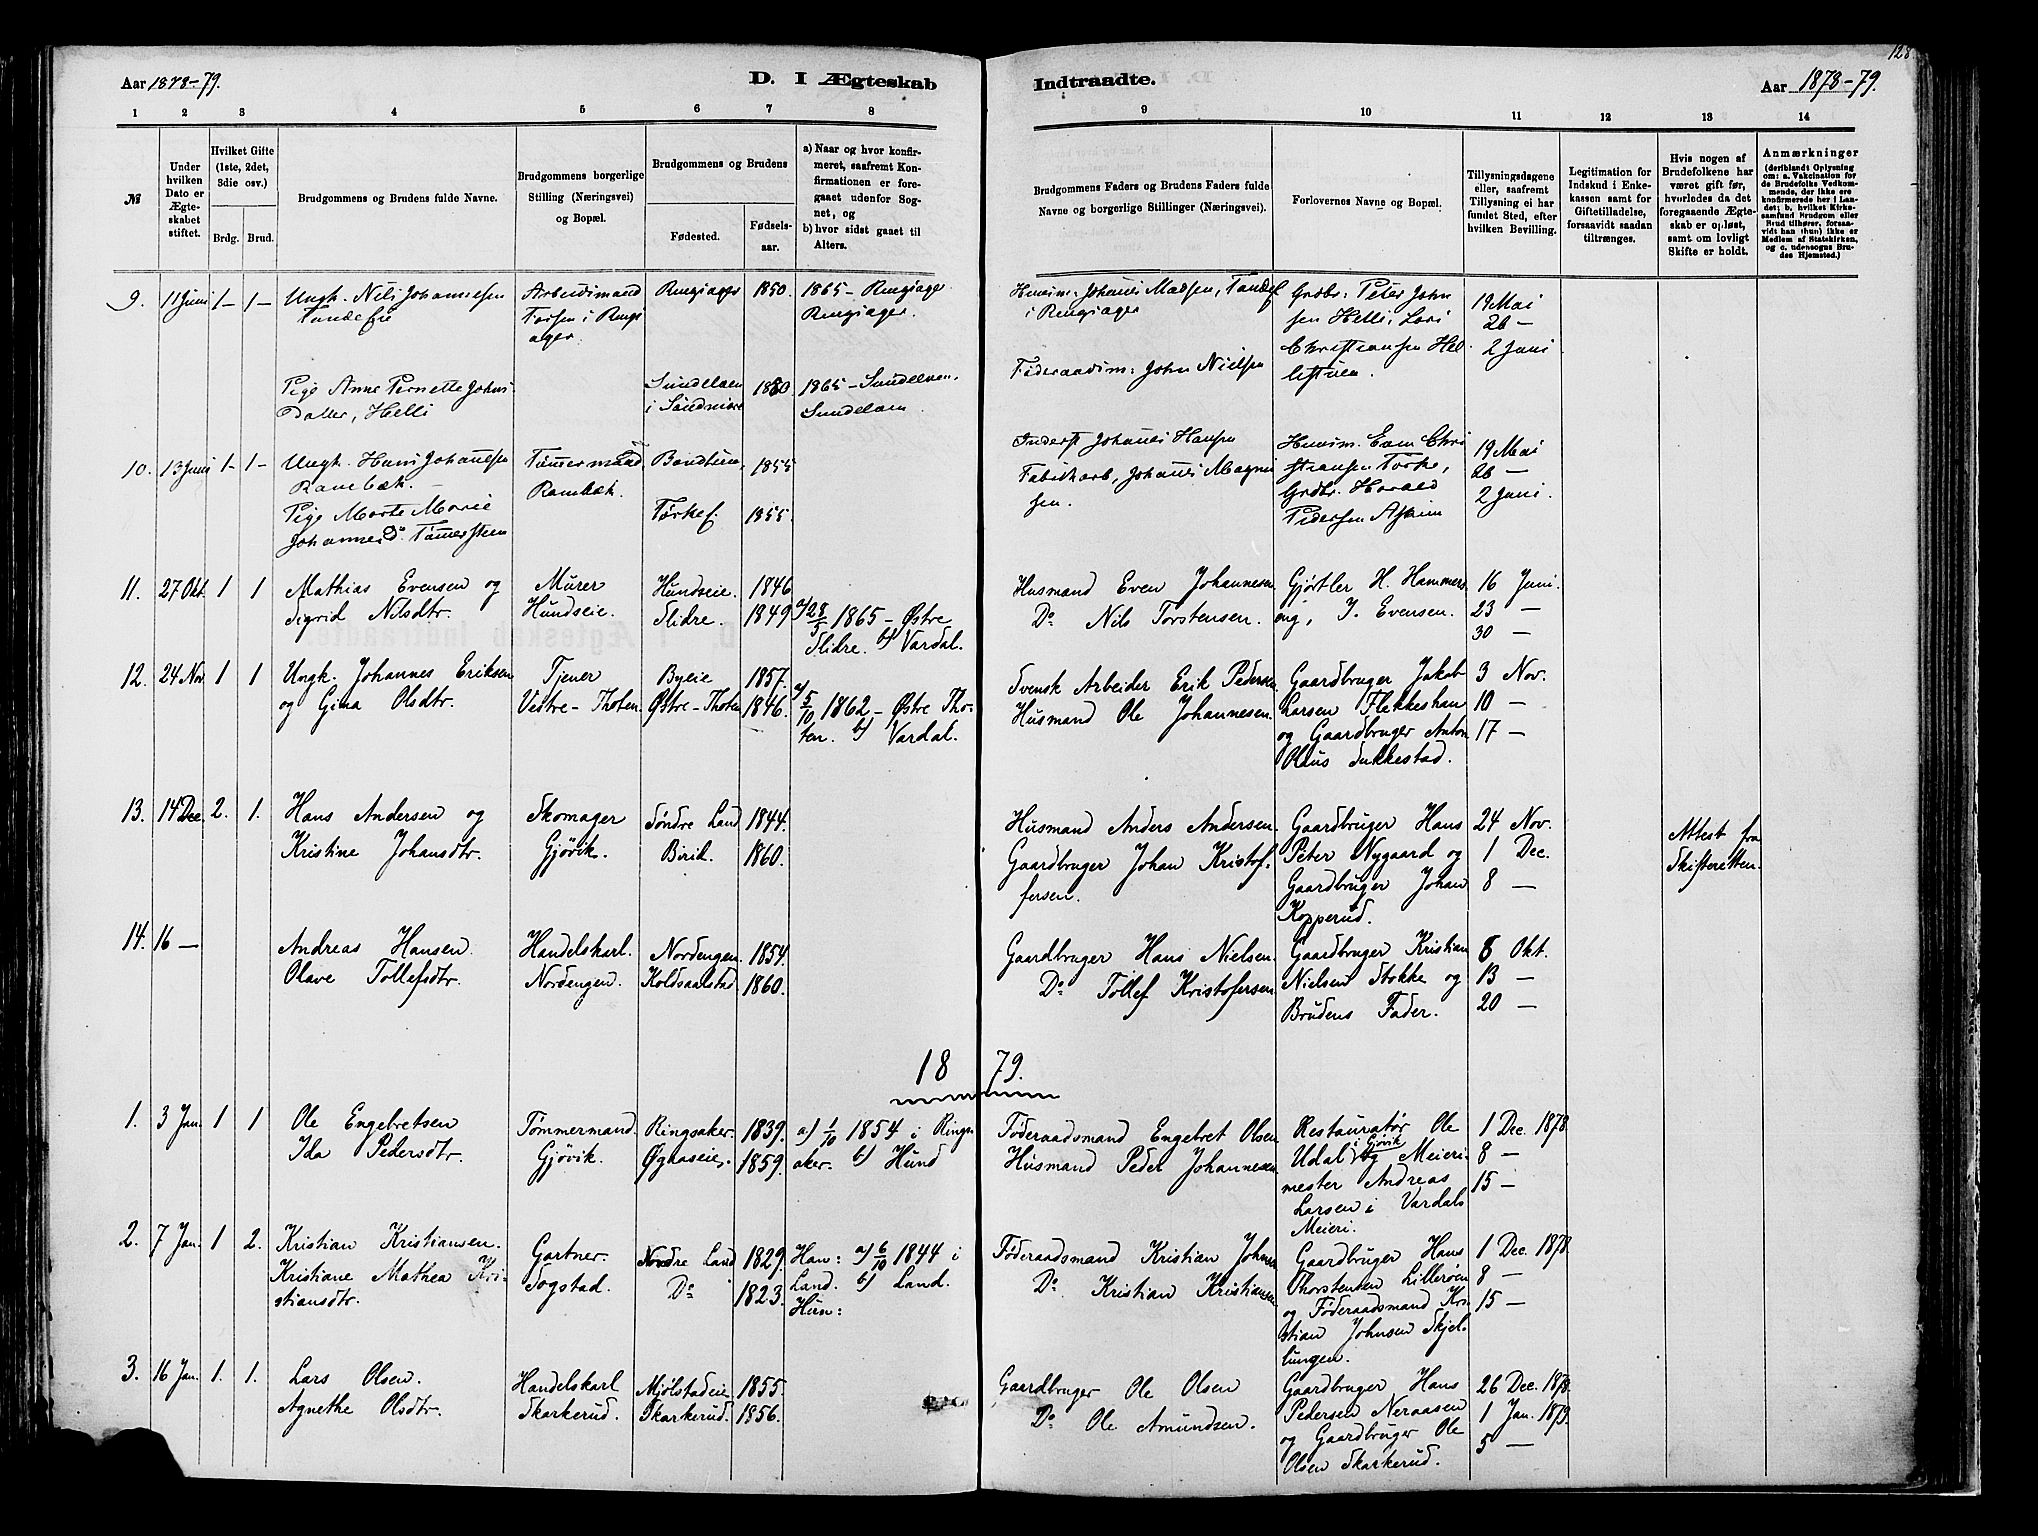 128
Aar 1878-79.
D. I Ægteskab
Indtraadte.
Aar 1878-79.
1 2 3 4 5 6 7 8 9 10 11 12 13 14
№
Under hvilken Dato er Ægteskabet stiftet.
Hvilket Gifte (1ste, 2det, 3die osv.)
Brdg. Brud.
Brudgommens og Brudens fulde Navne.
Brudgommens borgerlige Stilling (Næringsvei) og Bopæl.
Brudgommens og Brudens
Fødested. Fødselsaar.
a) Naar og hvor konfirmeret, saafremt Konfirmationen er foregaaet udenfor Sognet, og
b) hvor sidst gaaet til Alters.
Brudgommens Faders og Brudens Faders fulde Navne og borgerlige Stillinger (Næringsvei).
Forlovernes Navne og Bopæl.
Tillysningsdagene eller, saafremt Tillysning ei har fundet Sted, efter hvilken Bevilling.
Legitimation for Indskud i Enkekassen samt for Giftetilladelse, forsaavidt saadan tiltrænges.
Hvis nogen af Brudefolkene har været gift før, hvorledes da det foregaaende Ægteskab er opløst, samt om lovligt Skifte er holdt.
Anmærkninger (deriblandt Oplysning om: a. Vakcination for de Brudefolks Vedkommende, der ikke ere konfirmerede her i Landet; b. hvilket Kirkesamfund Brudgom eller Brud tilhører, forsaavidt han (hun) ikke er Medlem af Statskirken, og c. udensogns Brudes Hjemsted.)
9. 11 Juni 1- 1- Ungk. Nils Johannesen Arbeidsmand Ringsager 1850. 1865 - Ringsager
Ringsager.
Husm: Johanes Madsen,
i Ringsager
Grdbr: Peter John
sen Helli, Lars
Christiansen Hel
listuen.
19 Mai
26 -
2 Juni
Pige Anne Pernette Johns
Datter, Helli
Sundalen
i Søndmøre
1850 1865 - Sundalen.
Sundalen
Føderaadsm: John Nielsen
10. 13 Juni 1- 1- Ungk. Hans Johansen Tømmermand 1855
Rambæk.
Pige Marte Marie
Johannesd. Tømmersteen
1855.
Inderst Johanes Hansen
Fabrikarb, Johanes Magnu
sen.
Husm. Even Chri
stiansen Torke,
Grdbr. Harald
Pedersen Askim
19 Mai
26 -
2 Juni.
11. 27 Okt. 1 1 Mathias Evensen og Murer Hundseie. 1846
Sigrid Nilsdtr. Hundseie. Slidre. 1849 a/ 28/5 1865 - Østre
Slidre. b/ Vardal.
Husmand Even Johannesen
Do Nils Torstensen.
Gjørtler H. Hammers
eng, J. Evensen.
16 Juni.
23 -
30 -
12. 24 Nov. 1 1 Ungk. Johannes Eriksen Tjener Byeie 1857.
og Gina Olsdtr. Vestre-Thoten Østre-Thoten 1846. a/ 5/10 1862 - Østre Tho-
ten. b/ Vardal.
Svensk Arbeider Erik Pedersen
Husmand Ole Johannesen.
Gaardbruger Jakob
Larsen Flekkeshau
og Gaardbruger Anton
Olaus Sukkestad.
3 Nov.
10 -
17 -
13. 14 Dec. 2. 1. Hans Andersen og Skomager Søndre Land 1844.
Kristine Johansdtr. Gjøvik. Birid. 1860.
Husmand Anders Andersen.
Gaardbruger Johan Kristof-
fersen.
Gaardbruger Hans
Peter Nygaard og
Gaardbruger Johan
Kopperud.
24 Nov.
1 Dec.
8 -
Attest fra
Skifteretten.
14. 16 - Andreas Hansen. Handelskarl. Nordengen. 1854.
Olave Tollefsdtr. Nordengen. Koldsaalstad. 1860.
Gaardbruger Hans Nielsen.
Do Tollef Kristofersen
Gaardbruger Kristian
Nielsen Stokke og
Brudens Fader.
6 Okt.
13 -
20 -
18 79.
1. 3 Jan. 1 1 Ole Engebretsen Tømmermand. Ringsaker. 1839. a) 1/10 1854 i Rings
Ida Pedersdtr. Gjøvik. Øghaseie. 1859. aker. b) Hund
Føderaadsmand Engebret Olsen
Husmand Peder Johannesen
Restauratør Ole
Udal i Gjøvik og Meieri-
mester Andreas
Larsen i Vardals
Meieri.
1 Dec. 1878
8 -
15 -
2. 7 Jan. 1 2. Kristian Kristiansen. Gartner. Nordre Land 1829. Han: a) 6/10 1844 i
Kristiane Mathea Kri- Sogstad. Do 1823. Land. b) Land.
stiansdtr. Hun:
Føderaadsmand Kristian Johnsen
Do Kristian Kristiansen
Gaardbruger Hans
Thorstensen Lillerøen
og Føderaadsmand Kri
stian Johnsen Skjel-
lungen.
1 Dec. 1878
8 -
15 -
3. 16 Jan. 1. 1. Lars Olsen. Handelskarl Mjølstadeie 1855.
Agnethe Olsdtr. Skarkerud. Skarkerud. 1856.
Gaardbruger Ole Olsen
Do Ole Amundsen.
Gaardbruger Hans
Pedersen Neraasen
og Gaardbruger Ole
Olsen Skarkerud.
26 Dec. 1878.
1 Jan. 1879.
5 -